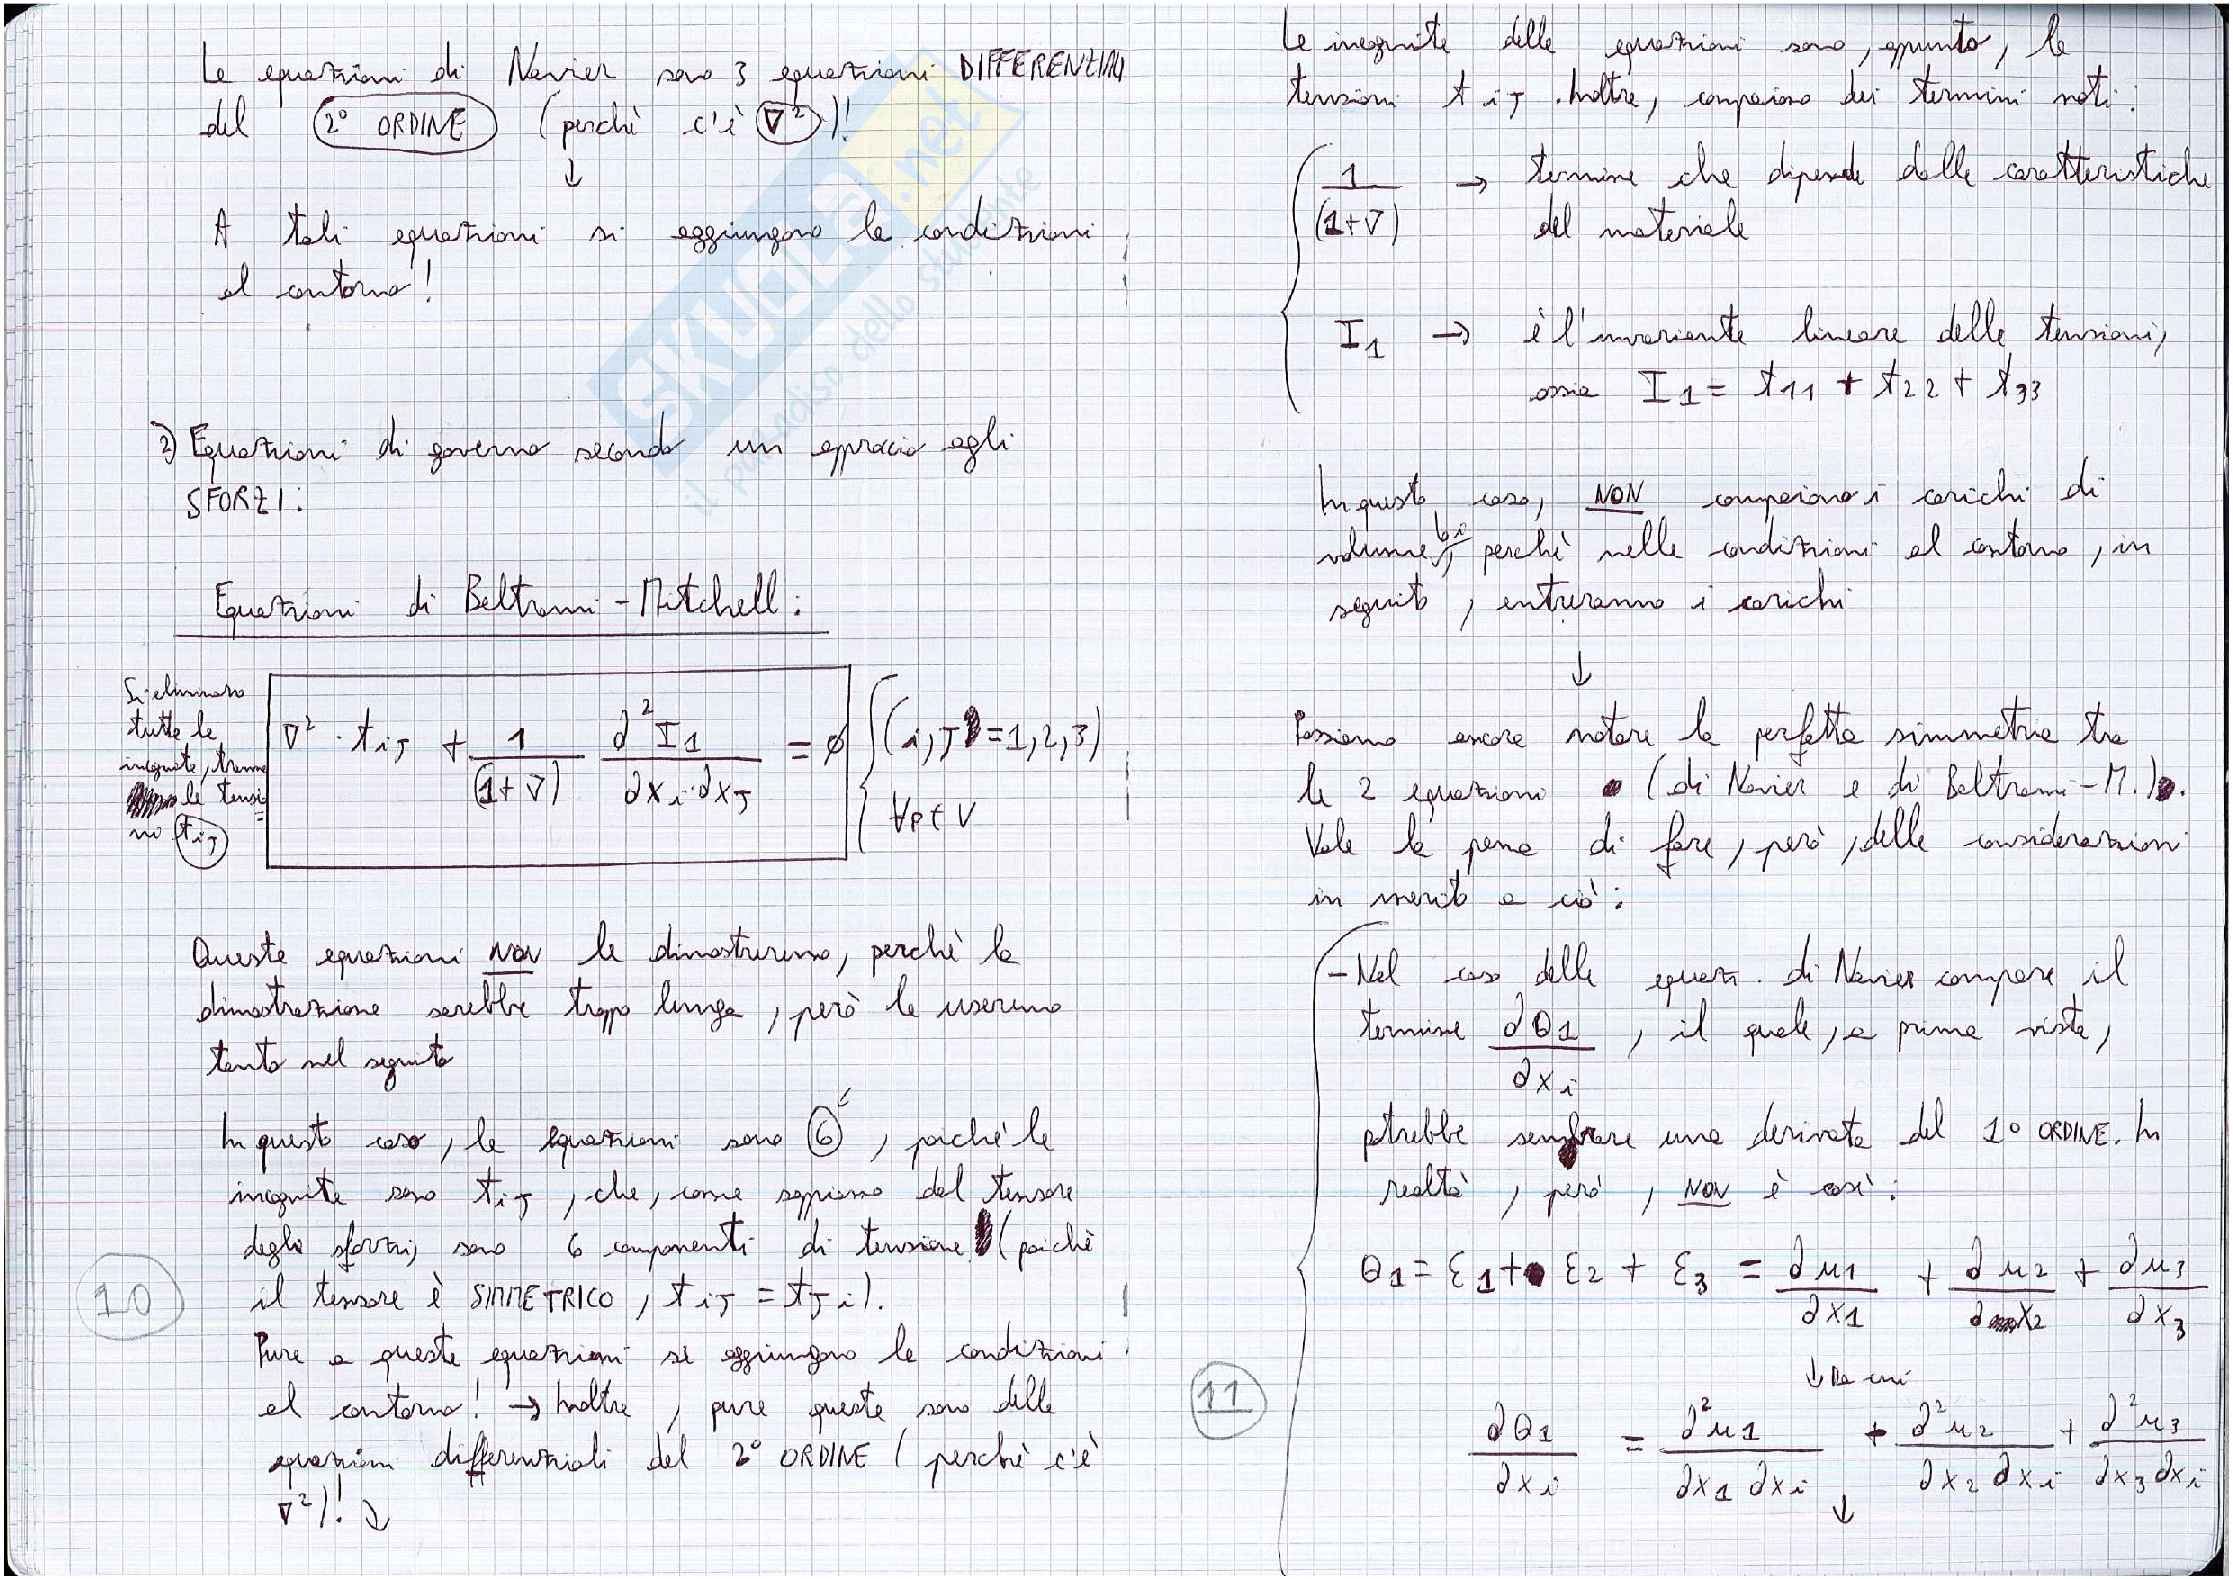 Le equazioni di Navier sono 3 equazioni DIFFERENZIALI
del 2° ORDINE (perchè c'è ∇²)!
↓
A tali equazioni si aggiungono le condizioni
al contorno!
2) Equazioni di governo secondo un approcio agli
SFORZI:
Equazioni di Beltrami-Mitchell:
Si eliminano
tutte le
incognite, tranne
le tensio
ni tiJ
∇² · tiJ + 1/(1+ν) ∂²I1/∂xi·∂xJ = ∅ { (i,J=1,2,3)
∀P∈V
Queste equazioni NON le dimostreremo, perchè la
dimostrazione sarebbe troppo lunga, però le useremo
tanto nel seguito
In questo caso, le equazioni sono 6, poichè le
incognite sono tiJ, che, come sappiamo dal tensore
degli sforzi, sono 6 componenti di tensione (poichè
il tensore è SIMMETRICO, tiJ = tJi).
Pure a queste equazioni si aggiungono le condizioni
al contorno! → Inoltre, pure queste sono delle
equazioni differenziali del 2° ORDINE (perchè c'è
∇²)! ↓
10
Le incognite delle equazioni sono, appunto, le
tensioni tiJ. Inoltre, compaiono dei termini noti:
1/(1+ν) → termine che dipende dalle caratteristiche
del materiale
I1 → è l'invariante lineare delle tensioni,
ossia I1 = t11 + t22 + t33
In questo caso, NON compaiono i carichi di
volume bi, perchè nelle condizioni al contorno, in
seguito, entreranno i carichi
↓
Possiamo ancora notare la perfetta simmetria tra
le 2 equazioni (di Navier e di Beltrami-M.).
Vale la pena di fare, però, delle considerazioni
in merito a ciò:
- Nel caso delle equaz. di Navier compare il
termine ∂Θ1/∂xi, il quale, a prima vista,
potrebbe sembrare una derivata del 1° ORDINE. In
realtà, però, NON è così:
Θ1 = ε1 + ε2 + ε3 = ∂u1/∂x1 + ∂u2/∂x2 + ∂u3/∂x3
↓ Da cui
∂Θ1/∂xi = ∂²u1/∂x1 ∂xi + ∂²u2/∂x2 ∂xi + ∂²u3/∂x3 ∂xi
↓
11
SKUOLA.net
il paradiso dello studente